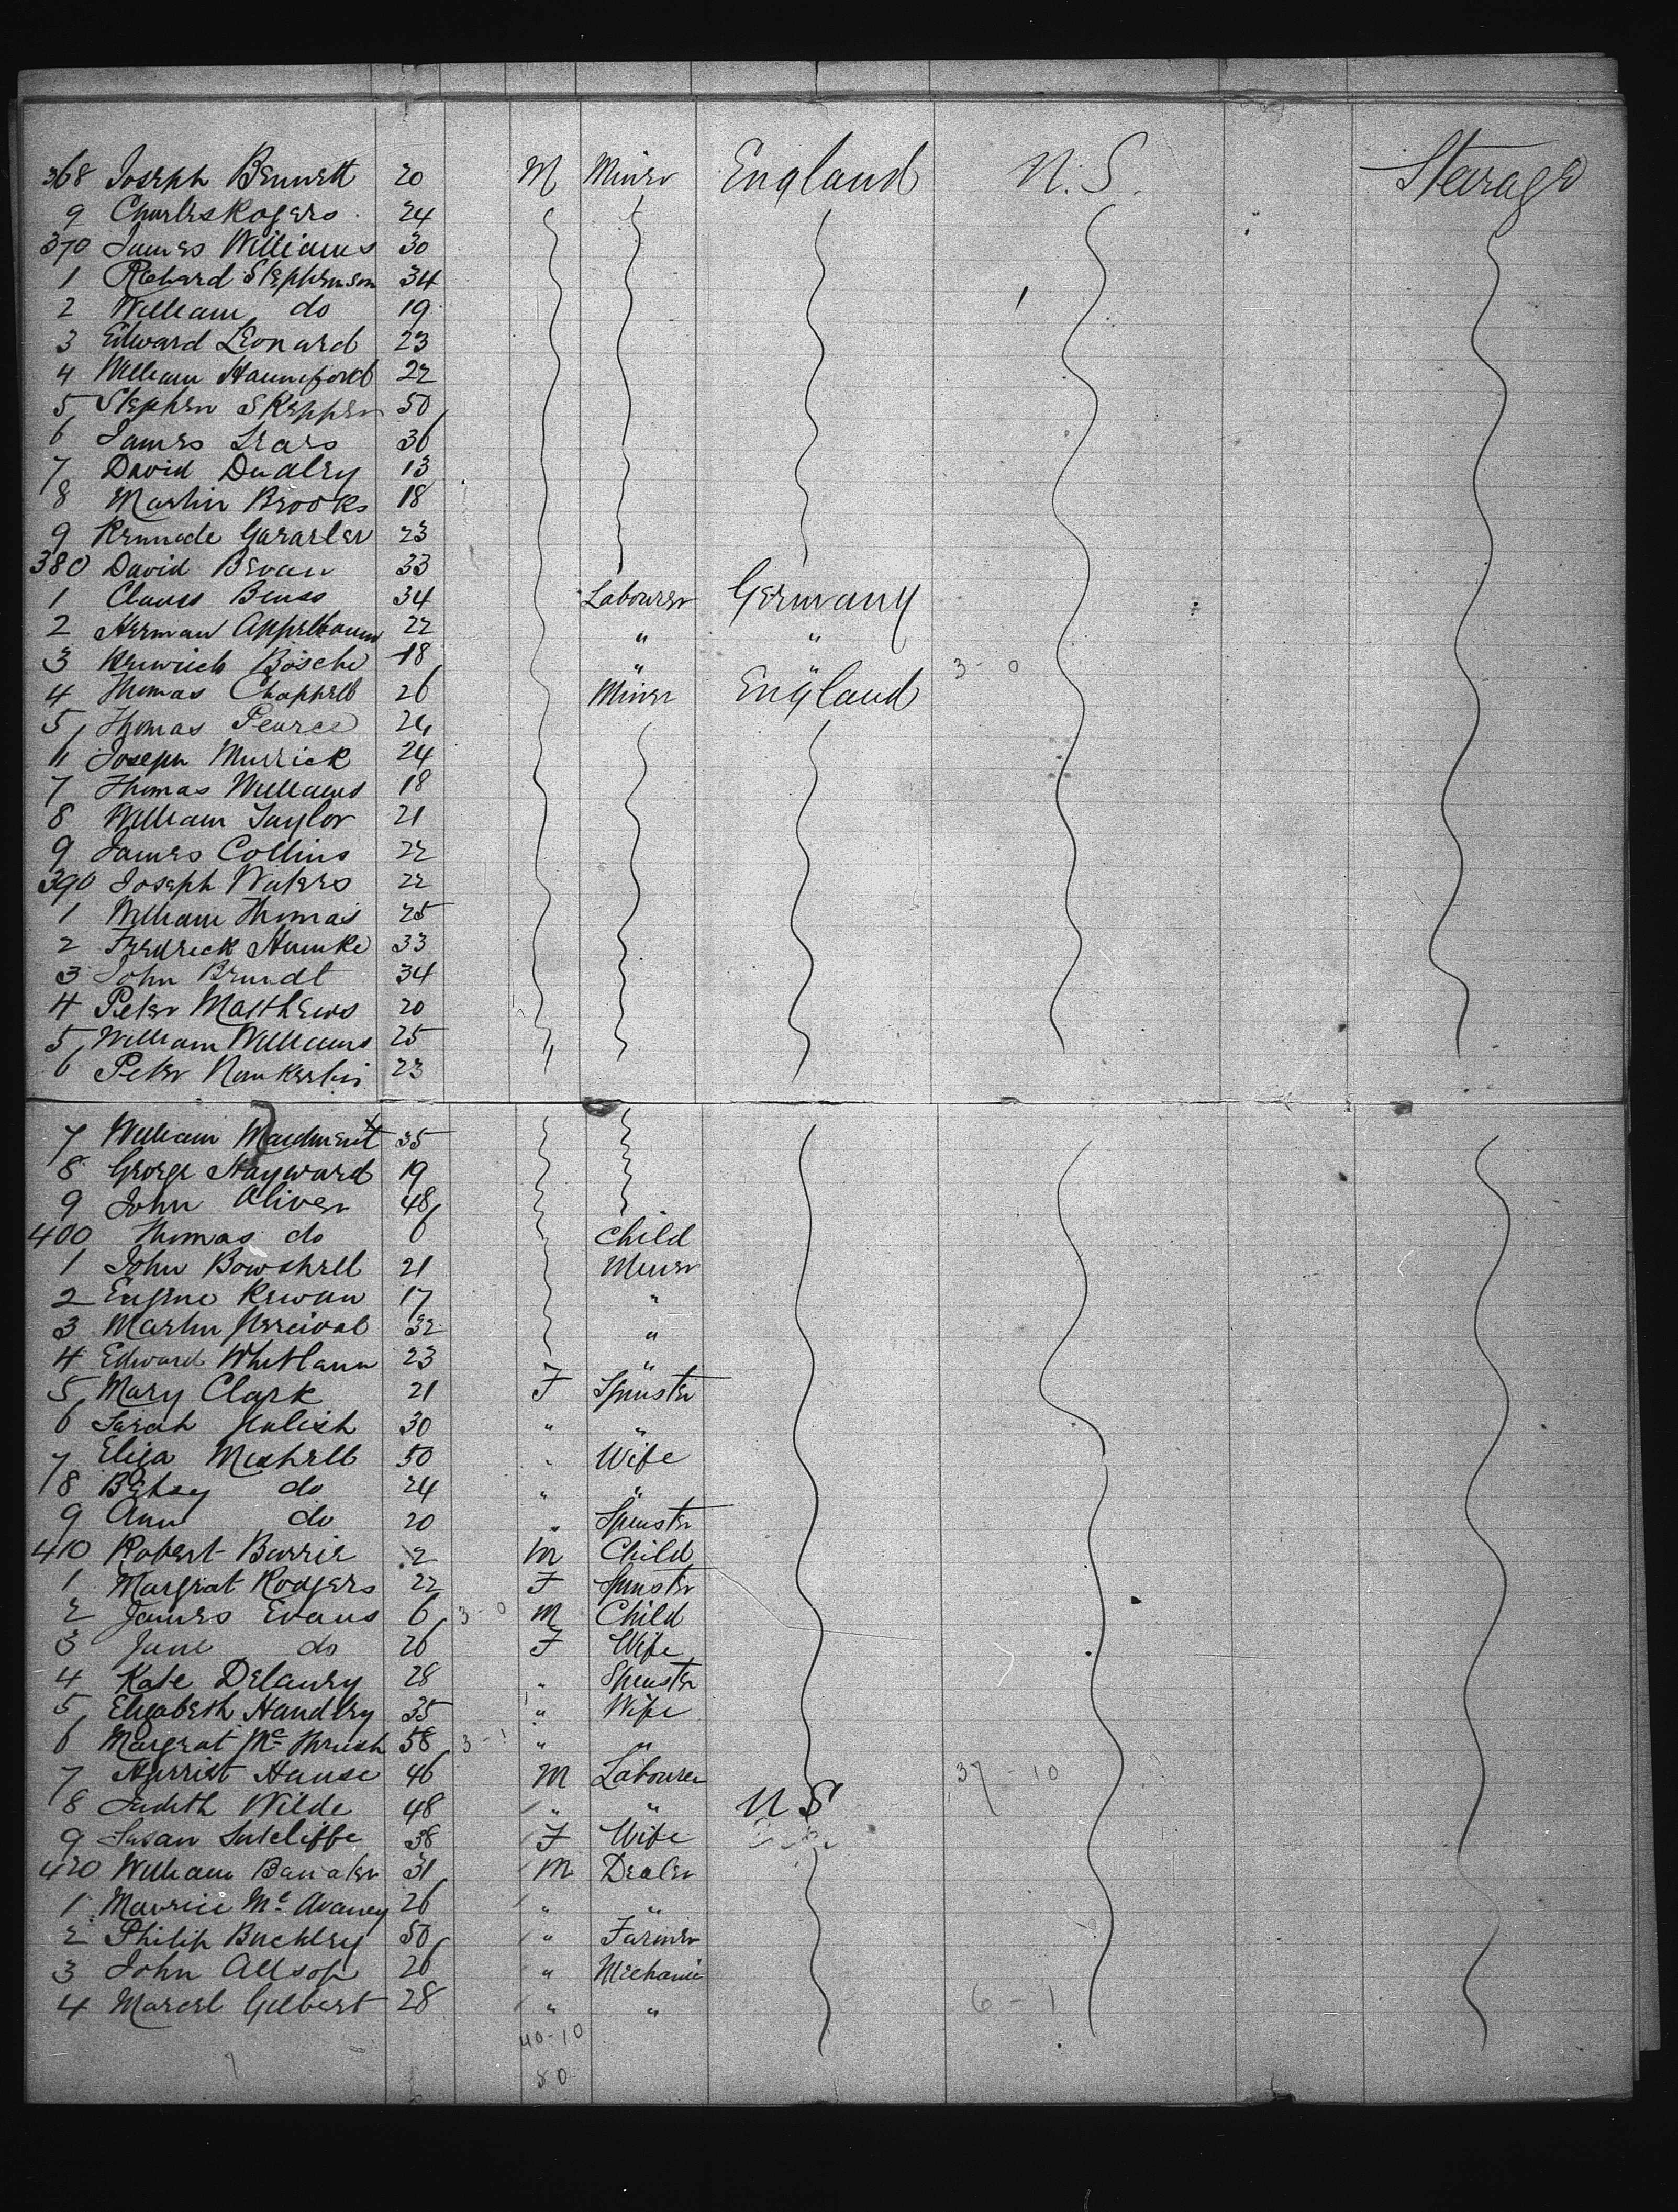 368 Joseph Bennett 20 M Miner England N.S. Stearage
9 Charles Rogers 24
370 James Williams 30
1 Richard Stephenson 34
2 William do 19
3 Edward Leonard 23
4 William Hannaford 22
5 Stephen Skepper 50
6 James Sears 36
7 David Dudley 13
8 Martin Brooks 18
9 23
380 David Bevan 33
1 Claus 34 Labourer Germany
2 Herman Appelbaum 22 " "
3 Bösche 18 " " 3-0
4 Thomas Chappell 26 Miner England
5 Thomas Pearce 24
6 Joseph Murrick 24
7 Thomas Williams 18
8 William Taylor 21
9 James Collins 22
390 Joseph Waters 22
1 William Thomas 25
2 Fredrick Humke 33
3 John Brundt 34
4 Peter Matthews 20
5 William Williams 25
6 Peter 23
7 William Maidment 35
8 George Hayward 19
9 John Oliver 48
400 Thomas do 6 Child
1 John Bowshell 21 Miner
2 Eugene Kewan 17 "
3 Martin Percival 32 "
4 Edward 23 "
5 Mary Clark 21 F Spinster
6 Sarah 30 " "
7 Eliza Mishell 50 " Wife
8 Betsy do 24 " "
9 Ann do 20 " Spinster
410 Robert Barrie 2 M Child
1 Margrat Rodgers 22 F Spinster
2 James Evans 6 3-0 M Child
3 Jane do 26 F Wife
4 Kate Delaney 28 " Spinster
5 Elizabeth Handley 35 " Wife
6 Margrat Mc 58 3-1 " "
7 Harriet Hanse 46 M Labourer 37-10
8 Judith Wilde 48 " " U S
9 Susan Sutcliffe 38 F Wife
420 William 31 M Dealer
1 Maurice Mc Avaney 26 " "
2 Philip Buckley 50 " Farmer
3 John Allsop 26 " Mechanic
4 Marcel Gilbert 28 " " 6-1
40-10
50